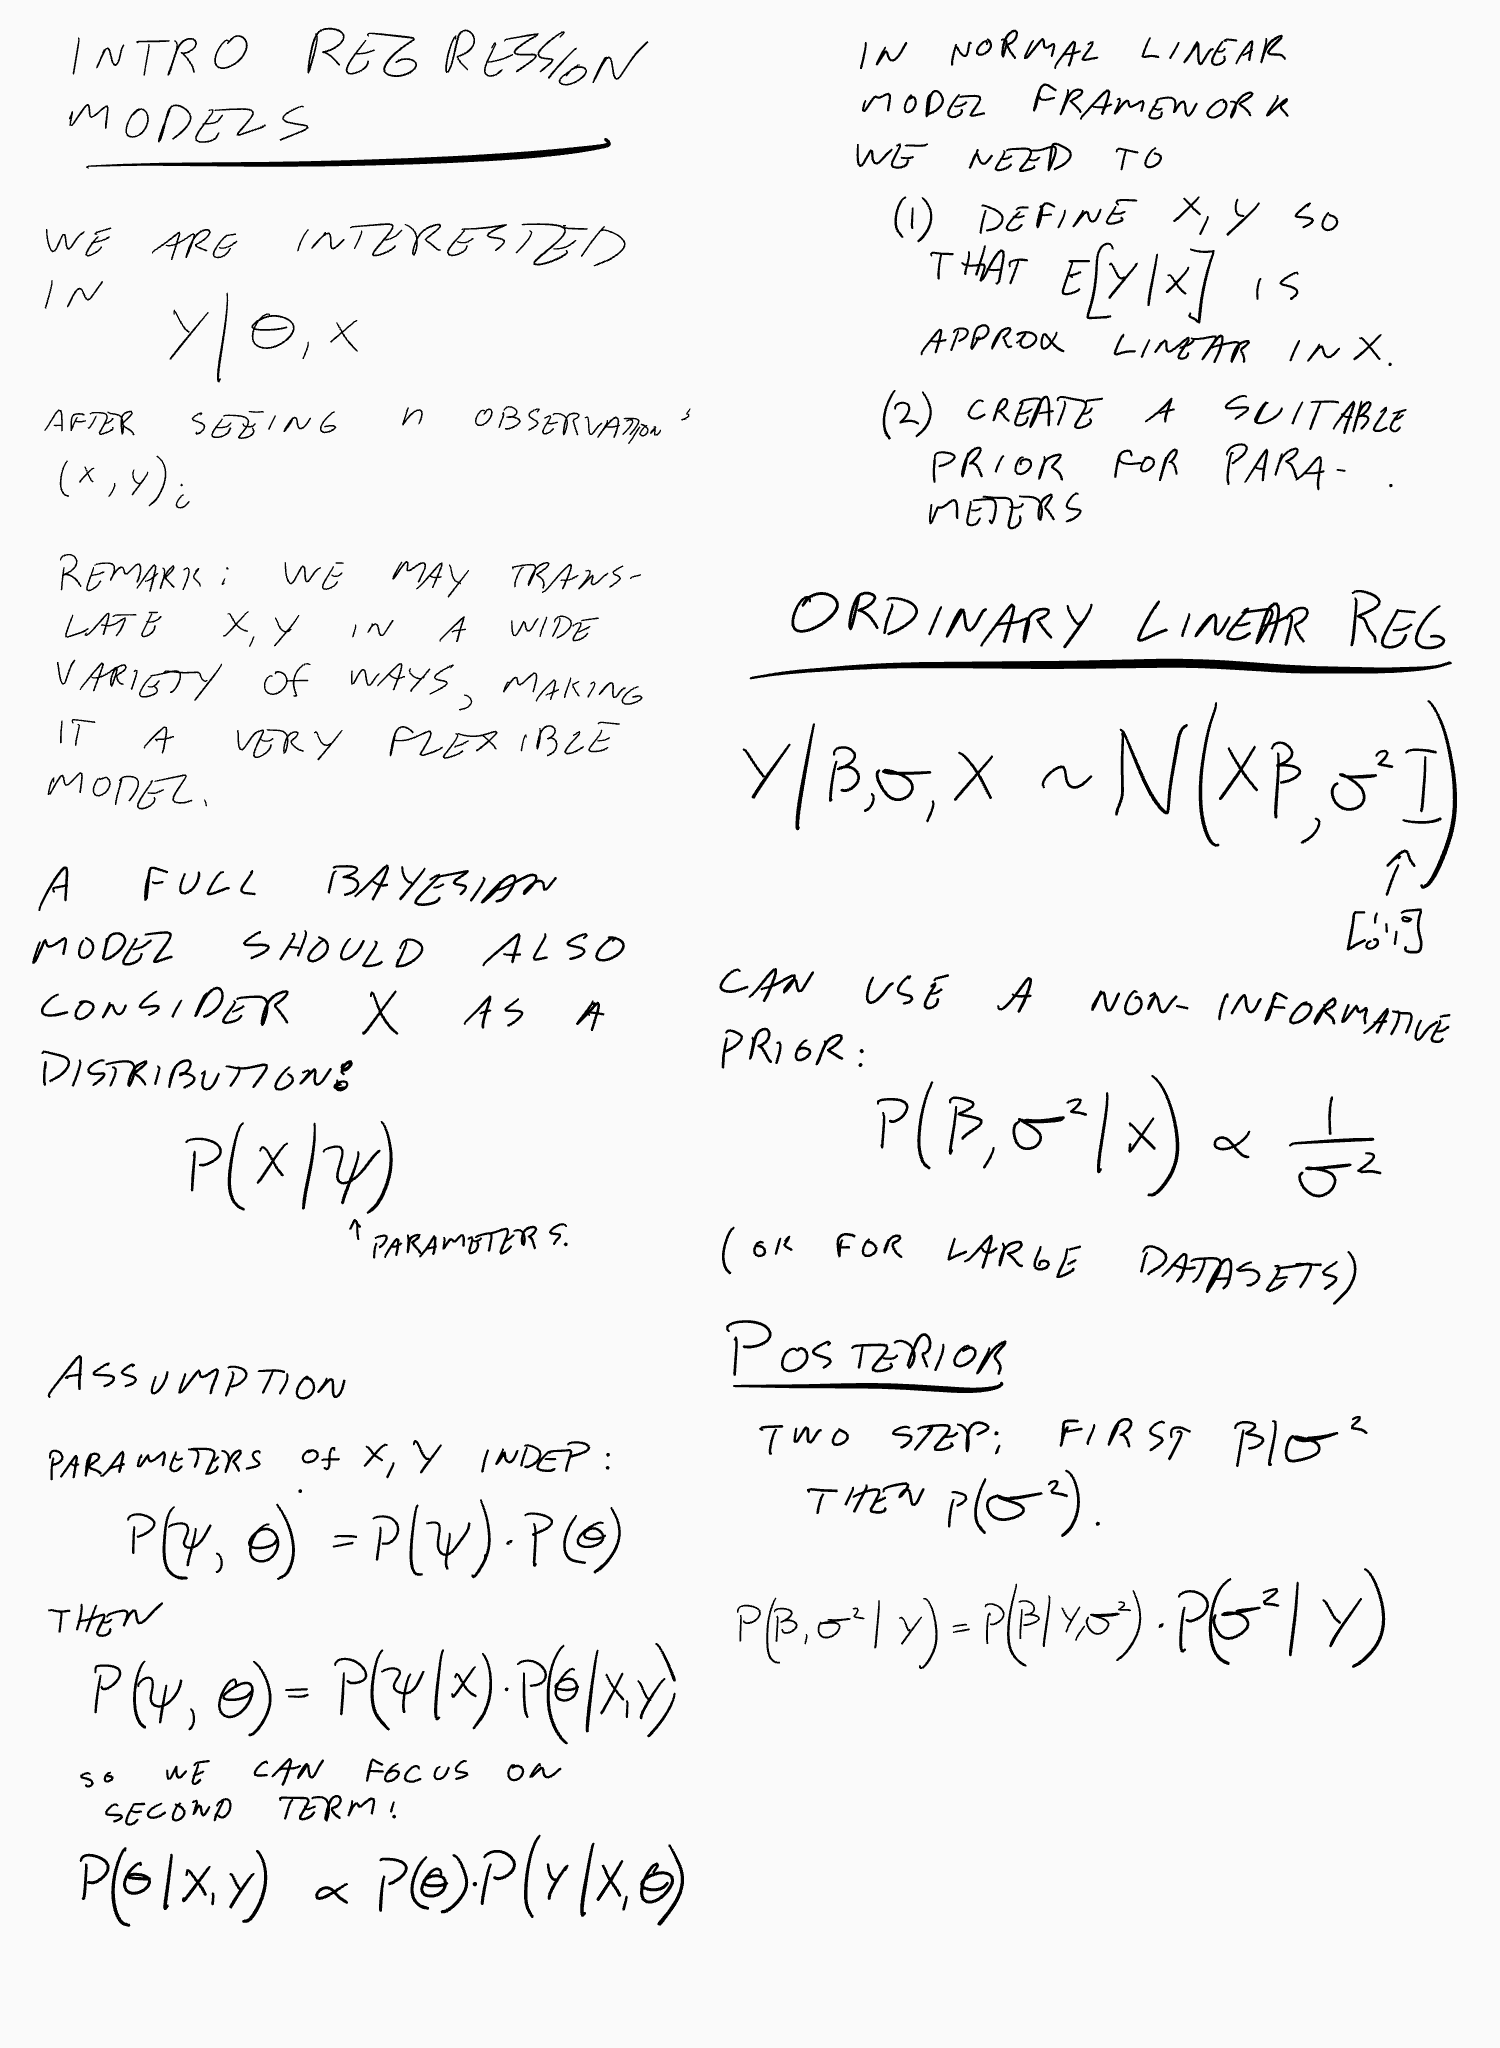 INTRO REGRESSION
MODELS
WE ARE INTERESTED
IN
Y|θ, X
AFTER SEEING n OBSERVATIONS
(X, Y)i
REMARK: WE MAY TRANS-
LATE X, Y IN A WIDE
VARIETY OF WAYS, MAKING
IT A VERY FLEXIBLE
MODEL.
A FULL BAYESIAN
MODEL SHOULD ALSO
CONSIDER X AS A
DISTRIBUTION:
P(X|ψ)
↑ PARAMETERS.
ASSUMPTION
PARAMETERS OF X, Y INDEP:
P(ψ, θ) = P(ψ)·P(θ)
THEN
P(ψ, θ) = P(ψ|X)·P(θ|X,Y)
SO WE CAN FOCUS ON
SECOND TERM!
P(θ|X,Y) ∝ P(θ)·P(Y|X,θ)
IN NORMAL LINEAR
MODEL FRAMEWORK
WE NEED TO
(1) DEFINE X, Y SO
THAT E[Y|X] IS
APPROX LINEAR IN X.
(2) CREATE A SUITABLE
PRIOR FOR PARA-
METERS
ORDINARY LINEAR REG
Y|β,σ,X ~ N(Xβ, σ²I)
↑
[1⋱1]
CAN USE A NON-INFORMATIVE
PRIOR:
P(β, σ²|X) ∝ 1/σ²
(OK FOR LARGE DATASETS)
POSTERIOR
TWO STEP: FIRST β|σ²
THEN P(σ²).
P(β,σ²|Y) = P(β|Y,σ²)·P(σ²|Y)